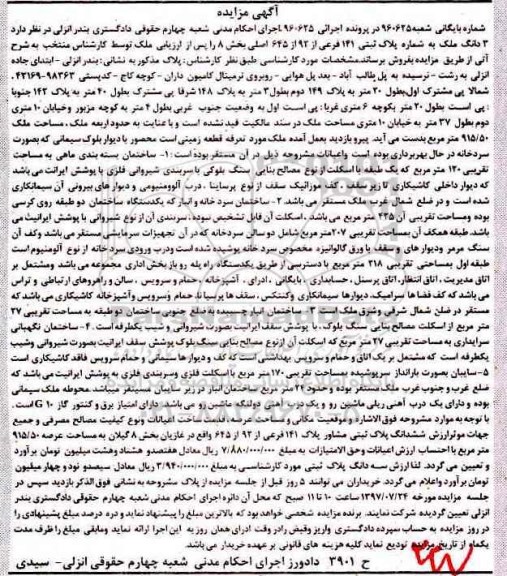 آگهی مزایده
شماره بایگانی شعبه ۹۶۰۶۲۵ در پرونده اجرائی ۹۶۰۶۲۵ اجرای احکام مدنی شعبه چهارم حقوقی دادگستری بندر انزلی در نظر دارد
۳ دانگ ملک به شماره پلاک ثبتی ۱۴۱ فرعی از ۹۲ از ۶۴۵ اصلی بخش ۸ را پس از ارزیابی ملک توسط کارشناس منتخب به شرح
آتی از طریق مزایده بفروش برساند. مشخصات مورد کارشناسی طبق نظر کارشناس: پلاک مذکور به نشانی: بندر انزلی - ابتدای جاده
انزلی به رشت - نرسیده به پل طالب آباد - بعد پل هوایی - روبروی ترمینال کامیون داران - کوچه کاج - کدپستی ۹۸۳۶۳-۴۲۱۶۹
شمالا پی مشترک اول بطول ۲۰ متر به پلاک ۱۴۹ دوم بطول ۳ متر به پلاک ۱۴۸ شرقا پی مشترک بطول ۴۰ متر به پلاک ۱۴۲ جنوبا
: پی است بطول ۲۰ متر بکوچه ۶ متری غربا: پی است اول به وضعیت جنوب غربی بطول ۴ متر به کوچه مزبور وخیابان ۱۰ متری
دوم بطول ۳۷ متر به خیابان ۱۰ متری مساحت ملک در سند مالکیت قید نشده است و با عنایت به حدود اربعه ملک، مساحت ملک
۹۱۵/۵۰ متر مربع بدست می آید. پیرو بازدید بعمل آمده ملک مورد تعرفه قطعه زمینی است محصور با دیوار بلوک سیمانی که بصورت
سردخانه در حال بهره برداری بوده است واعیانات مشروحه ذیل در آن مستقر بوده است: ۱- ساختمان بسته بندی ماهی به مساحت
تقریبی ۱۳۰ متر مربع که یک طبقه با اسکلت از نوع مصالح بنایی سنگ بلوکی با سربندی شیروانی فلزی با پوشش ایرانت می باشد
که دیوار داخلی کاشیکاری تا زیر سقف، کف موزائیک سقف از نوع پرساینا، درب آلومینیومی و دیوار های بیرونی آن سیمانکاری
شده است و در ضلع شمال غربی ملک مستقر می باشد. ۲- ساختمان سردخانه و انبار که یکدستگاه ساختمان دو طبقه روی کرسی
بوده ومساحت تقریبی آن ۴۲۵ متر مربع می باشد، اسکلت آن قابل تشخیص نبوده، سربندی آن از نوع شیروانی با پوشش ایرانیت می
باشد. طبقه همکف آن بمساحت تقریبی ۲۰۷ متر مربع شامل دو سالن سردخانه که در آن تجهیزات سرمایش مستقر می باشد وکف آن
سنگ مرمر ودیوار های و سقف با ورق گالوانیزه مخصوص سردخانه پوشیده شده است ودرب ورودی سردخانه از نوع آلومنیوم است
طبقه اول بمساحتی تقریبی ۲۱۸ متر مربع با دسترسی از طریق یکدستگاه راه پله رو باز بخش اداری مجموعه می باشد ومشتمل بر
اتاق مدیریت، اتاق انتظار، اتاق پرسنل، حسابداری، بایگانی، اداری، آشپزخانه، حمام و سرویس، سالن و راهروهای ارتباطی و تراس
می باشد که کف فضا ها سرامیک، دیوارها سیمانکاری وکنتکس، سقف ها پرسیانا، حمام وسرویس و آشپزخانه کاشیکاری می باشد که
مستقر در ضلع شمال شرقی وشرق ملک است. ۳- ساختمان انبار سرپوشیده به درب انتهای جنوب ساختمان دو طبقه به مساحت تقریبی ۳۷
متر مربع از اسکلت مصالح بنایی سنگ بلوک، با پوشش سقف ایرانیت بصورت شیروانی و شیب یکطرفه است. ۴- ساختمان نگهبانی
سرایداری به مساحت تقریبی ۲۷ متر مربع که اسکلت آن ازنوع مصالح بنایی سنگ بلوک پوشش سقف ایرانیت بصورت شیروانی وشیب
یکطرفه است که مشتمل بر یک اتاق و حمام و سرویس بهداشتی است که کف و دیوار ها سیمانی و حمام سرویس فاقد کاشیکاری است
۵- سایبان بصورت بارانداز سرپوشیده بمساحت تقریبی ۱۷۰ متر مربع با اسکلت فلزی وسربندی فلزی به پوشش ایرانیت می باشد که
ضلع غرب و جنوب غرب ملک استقرار بوده و حدود ۲۲ متر مربع ساختمان انبار در زیر سایبان مستقر میباشد. محوطه ملک سیمانی
بوده و دارای یک درب آهنی ریلی ماشین رو و یک درب آهنی دولنگه ماشین رو می باشد، دارای امتیاز برق و کنتور گاز G ۱۰ است.
با توجه به موارد مشروحه فوق الاشاره و موقعیت مکانی و مساحت عرصه، قدمت ساخت اعیانات ونوع کیفیت مصالح مصرفی و جمیع
جهات موثر ارزش ششدانگ پلاک ثبتی مشاور پلاک ۱۴۱ فرعی از ۹۲ از ۶۴۵ واقع در غازیان بخش ۸ گیلان به مساحت عرصه ۹۱۵/۵۰
متر مربع با احتساب ارزش اعیانات وحق الامتیازات به مبلغ ۷/۸۸۰/۰۰۰/۰۰۰ ریال معادل هفتصدو هشتاد وهشت میلیون تومان برآورد
و تعیین می گردد. لذا ارزش سه دانگ پلاک ثبتی مورد کارشناسی به مبلغ ۳/۹۴۰/۰۰۰/۰۰۰ ریال معادل سیصدو نودو چهار میلیون
تومان برآورد واعلام می گردد. خریداران می توانند ۵ روز قبل از جلسه مزایده از پلاک مشروحه به نشانی فوق الذکر بازدید سپس در
جلسه مزایده مورخه ۱۳۹۷/۰۷/۲۴ ساعت ۱۰ تا ۱۱ صبح که محل آن دائره اجرای احکام مدنی شعبه چهارم حقوقی دادگستری بندر
انزلی تعیین گردیده شرکت نمایند. برنده مزایده شخصی خواهد بود که بالاترین مبلغ را پیشنهاد نماید و ده درصد مبلغ پیشنهادی را
در روز مزایده به حساب سپرده دادگستری واریز وفیش رادر وقت ادرای همان روز به این اجرا ارائه نماید ومابقی مبلغ را ظرف مدت
یکماه از تاریخ مزایده تودیع نماید کلیه هزینه های قانونی بر عهده خریدار می باشد.
ح ۳۹۰۱ دادورز اجرای احکام مدنی شعبه چهارم حقوقی انزلی - سیدی